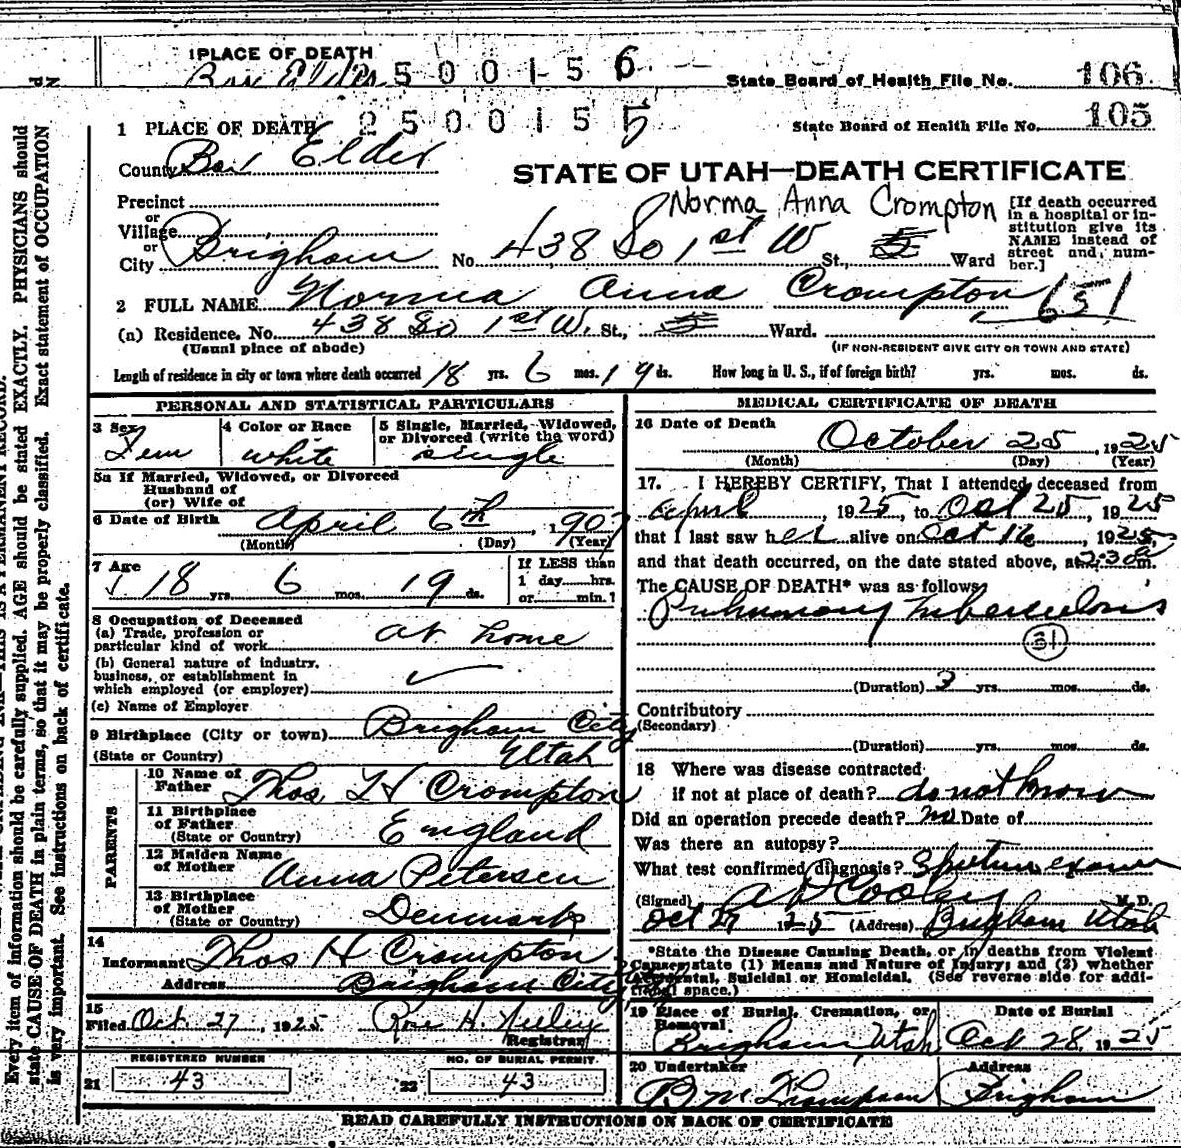 1 PLACE OF DEATH
Box Elder 500156
State Board of Health File No. 106
2500155
State Board of Health File No. 105
1 PLACE OF DEATH
County Box Elder
STATE OF UTAH—DEATH CERTIFICATE
Precinct
or
Village
or
City Brigham
Norma Anna Crompton
No. 438 So 1st W St., 5 Ward
[If death occurred
in a hospital or in-
stitution give its
NAME instead of
street and num-
ber.]
2 FULL NAME Norma Anna Crompton 651
(a) Residence. No. 438 So 1st W. St., 5 Ward.
(Usual place of abode)
(IF NON-RESIDENT GIVE CITY OR TOWN AND STATE)
Length of residence in city or town where death occurred 18 yrs. 6 mos. 19 ds. How long in U. S., if of foreign birth? yrs. mos. ds.
PERSONAL AND STATISTICAL PARTICULARS
3 Sex
Fem
4 Color or Race
white
5 Single, Married, Widowed,
or Divorced (write the word)
single
5a If Married, Widowed, or Divorced
Husband of
(or) Wife of
6 Date of Birth April 6th, 1907
(Month) (Day) (Year)
7 Age
18 yrs. 6 mos. 19 ds.
If LESS than
1 day hrs.
or min.
8 Occupation of Deceased
(a) Trade, profession or
particular kind of work at home
(b) General nature of industry,
business, or establishment in
which employed (or employer) ✓
(c) Name of Employer
9 Birthplace (City or town) Brigham City
(State or Country) Utah
PARENTS
10 Name of
Father Thos H Crompton
11 Birthplace
of Father England
(State or Country)
12 Maiden Name
of Mother Anna Petersen
13 Birthplace
of Mother Denmark
(State or Country)
14
Informant Thos H Crompton
Address Brigham City
15
Filed Oct. 27, 1925
Registrar
REGISTERED NUMBER
21 43
NO. OF BURIAL PERMIT
22 43
MEDICAL CERTIFICATE OF DEATH
16 Date of Death
October 25, 1925
(Month) (Day) (Year)
17. I HEREBY CERTIFY, That I attended deceased from
April, 1925, to Oct 25, 1925
that I last saw her alive on Oct 16, 1925,
and that death occurred, on the date stated above, at 2:30 m.
The CAUSE OF DEATH* was as follows
Pulmonary Tuberculosis
31
(Duration) 3 yrs. mos. ds.
Contributory
(Secondary)
(Duration) yrs. mos. ds.
18 Where was disease contracted
if not at place of death? do not know
Did an operation precede death? no Date of
Was there an autopsy?
What test confirmed diagnosis? Sputum exam
(Signed) Cooley M. D.
Oct 27 1925 (Address) Brigham Utah
*State the Disease Causing Death, or in deaths from Violent
Causes, state (1) Means and Nature of Injury; and (2) whether
Accidental, Suicidal or Homicidal. (See reverse side for addi-
tional space.)
19 Place of Burial, Cremation, or
Removal
Brigham, Utah
Date of Burial
Oct 28, 1925
20 Undertaker
Address
Brigham
READ CAREFULLY INSTRUCTIONS ON BACK OF CERTIFICATE
Every item of information should be carefully supplied. AGE should be stated EXACTLY. PHYSICIANS should
state CAUSE OF DEATH in plain terms, so that it may be properly classified. Exact statement of OCCUPATION
is very important. See instructions on back of certificate.